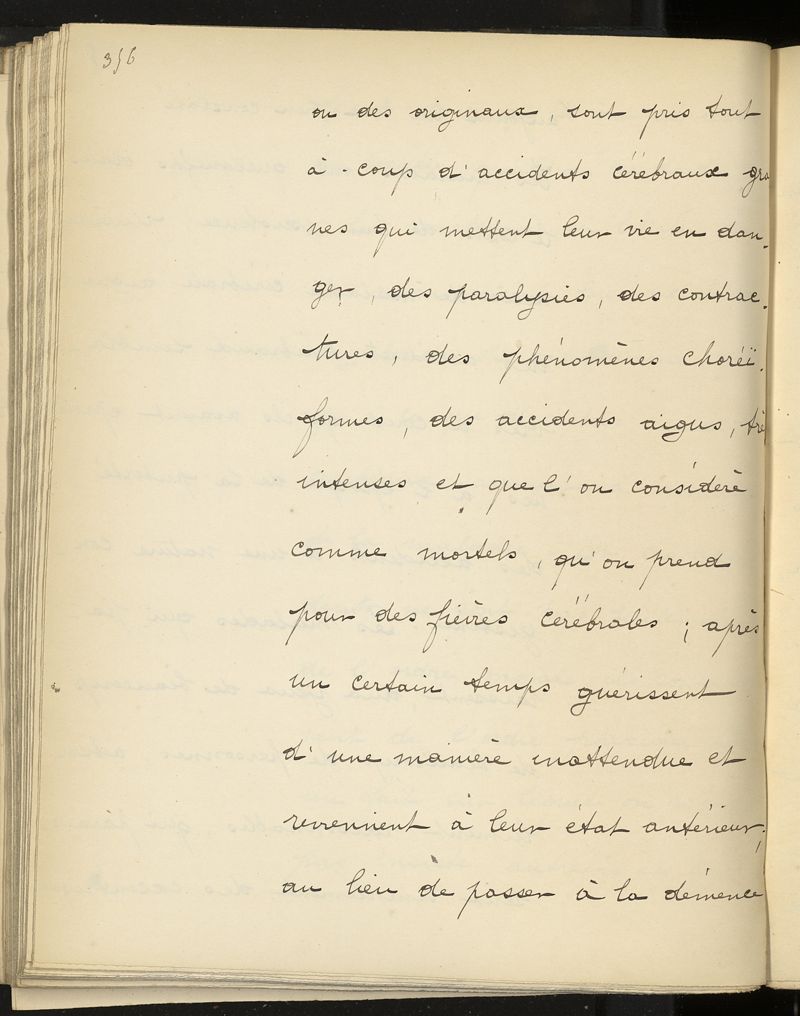 356
ou des originaux, sont pris tout
à-coup d'accidents cérébraux gra
ves qui mettent leur vie en dan-
ger, des paralysies, des contrac-
tures, des phénomènes choréï-
formes, des accidents aigus, très
intenses et que l'on considère
comme mortels, qu'on prend
pour des fièvres cérébrales ; après
un certain temps guérissent
d'une manière inattendue et
reviennent à leur état antérieur ;
au lieu de passer à la démence